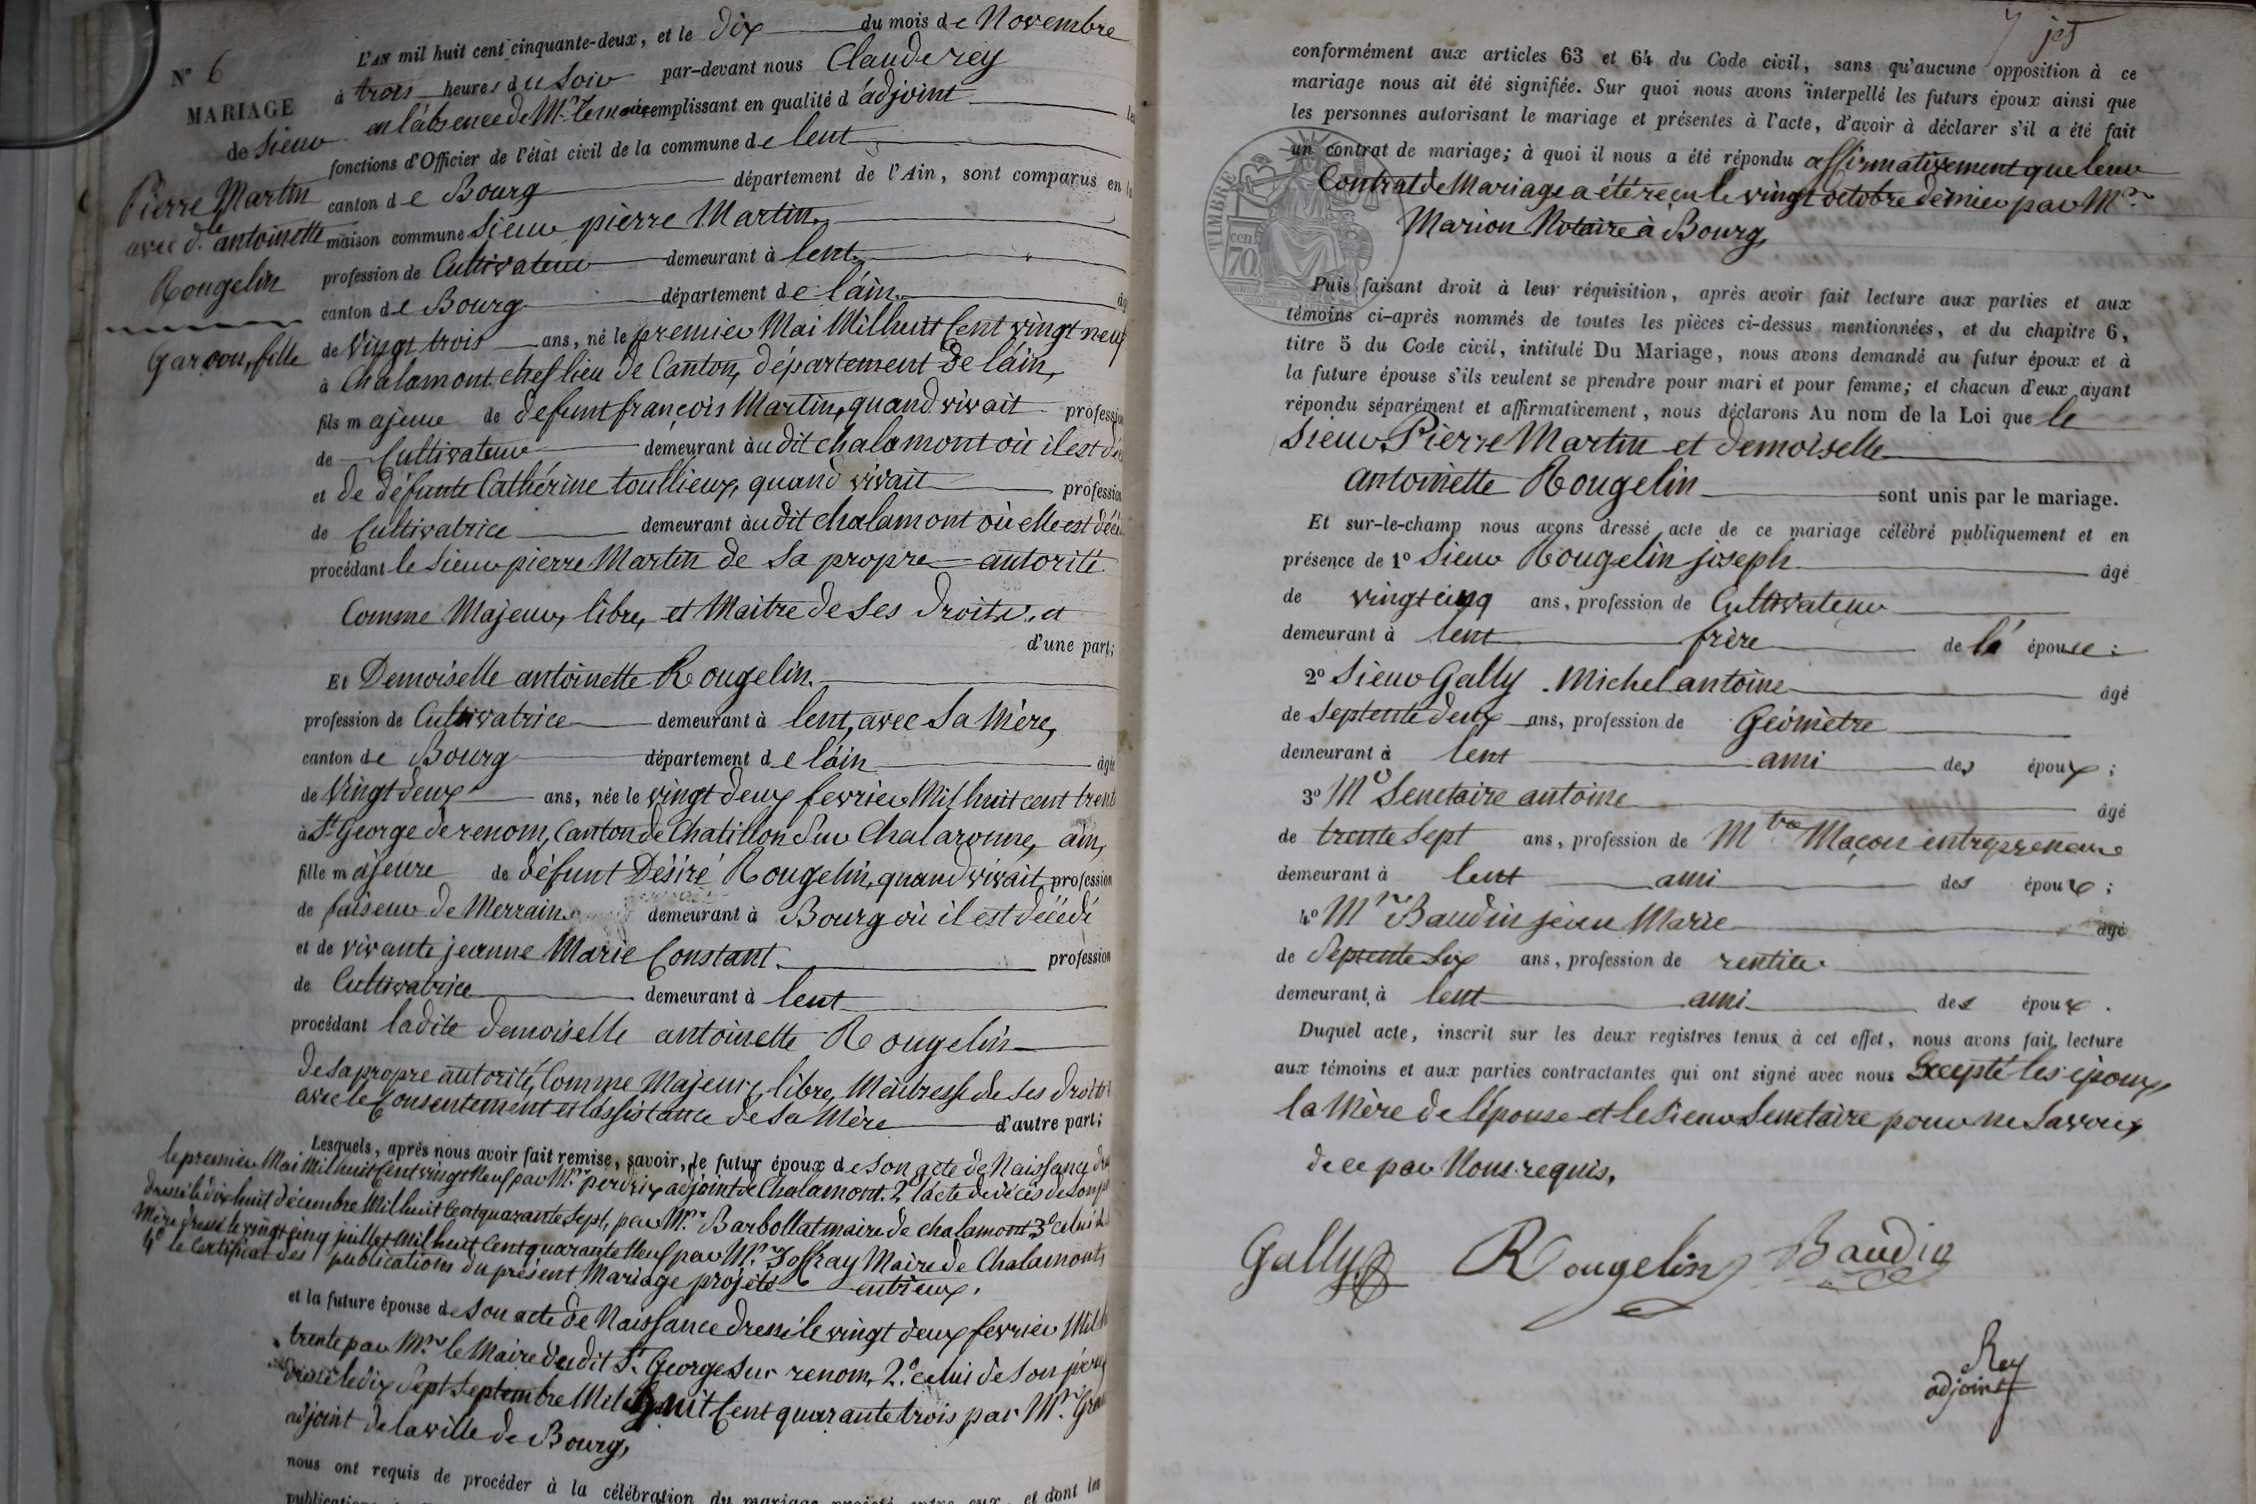 N° 6
MARIAGE
de Sieur
Pierre Martin
avec dlle antoinette
Rougelin
Garçon, fille
L'AN mil huit cent cinquante-deux, et le dix du mois de Novembre
à trois heures du Soir par-devant nous Claude rey
en l'absence de Mr. le maire remplissant en qualité d'adjoint les
fonctions d'Officier de l'état civil de la commune de lent
canton de Bourg département de l'Ain, sont comparus en la
maison commune Sieur pierre Martin,
profession de Cultivateur demeurant à lent,
canton de Bourg département de láin, âgé
de Vingt trois ans, né le premier Mai Mil huit Cent vingt neuf
à Chalamont chef lieu de Canton, département de láin,
fils majeur de defunt françois Martin, quand vivait profession
de Cultivateur demeurant àudit chalamont où il est dé
et de défunte Cathérine toullieux, quand vivait profession
de Cultivatrice demeurant àudit chalamont où elle est décé
procédant le Sieur pierre Martin de Sa propre autorité
Comme Majeur, libre, et Maitre de Ses Droits, et
d'une part;
Et Demoiselle antoinette Rougelin.
profession de Cultivatrice demeurant à lent, avec Sa Mère,
canton de Bourg département de láin âgée
de Vingt deux ans, née le vingt deux fevrier Mil huit cent trente
à St George de renom, Canton de Chatillon Sur Chalaronne, ain,
fille majeure de défunt Désiré Rougelin, quand vivait profession
de faiseur de Merrain demeurant à Bourg où il est décédé
et de vivante jeanne Marie Constant profession
de Cultivatrice demeurant à lent
procédant ladite demoiselle antoinette Rougelin
de sa propre autorité, Comme Majeure, libre, Maitresse de Ses droits
avec le Consentement et l'assistance de Sa Mère d'autre part;
Lesquels, après nous avoir fait remise, savoir, le futur époux de Son acte de Naissance
le premier Mai Mil huit Cent vingt Neuf par Mr. perdrix adjoint de Chalamont. 2° l'acte de décès de Son
dressé le dix huit décembre Mil huit Cent quarante Sept, par Mr. Barbollat maire de chalamont 3° celui de
Mère dressé le vingt cinq juillet Mil huit Cent quarante Neuf par Mr. Joffray Maire de Chalamont,
4° le Certificat des publications du présent Mariage projeté entr'eux.
et la future épouse de Son acte de Naissance dressé le vingt deux fevrier Mil
trente par Mr. le Maire dudit St. George Sur renom, 2° celui de Son père
dressé le dix Sept Septembre Mil huit Cent quarante trois par Mr.
adjoint de la ville de Bourg,
nous ont requis de procéder à la célébration du mariage projeté entre eux, et dont les
conformément aux articles 63 et 64 du Code civil, sans qu'aucune opposition à ce
mariage nous ait été signifiée. Sur quoi nous avons interpellé les futurs époux ainsi que
les personnes autorisant le mariage et présentes à l'acte, d'avoir à déclarer s'il a été fait
un contrat de mariage; à quoi il nous a été répondu affirmativement que leur
Contrat de Mariage a été reçu le vingt octobre dernier par Mr.
Marion Notaire à Bourg,
TIMBRE
70 cent
Puis faisant droit à leur réquisition, après avoir fait lecture aux parties et aux
témoins ci-après nommés de toutes les pièces ci-dessus mentionnées, et du chapitre 6,
titre 5 du Code civil, intitulé Du Mariage, nous avons demandé au futur époux et à
la future épouse s'ils veulent se prendre pour mari et pour femme; et chacun d'eux ayant
répondu séparément et affirmativement, nous déclarons Au nom de la Loi que le
Sieur Pierre Martin et demoiselle
antoinette Rougelin sont unis par le mariage.
Et sur-le-champ nous avons dressé acte de ce mariage célébré publiquement et en
présence de 1° Sieur Rougelin joseph âgé
de vingt cinq ans, profession de Cultivateur
demeurant à lent frère de lá épouse;
2° Sieur Gally Michel antoine âgé
de Septente deux ans, profession de Géomètre
demeurant à lent ami des époux;
3° Mr Senetaire antoine âgé
de trente Sept ans, profession de Mtre Maçon entrepreneur
demeurant à lent ami des époux;
4° Mr Baudin jean Marie âgé
de Septente Six ans, profession de rentier
demeurant à lent ami des époux.
Duquel acte, inscrit sur les deux registres tenus à cet effet, nous avons fait lecture
aux témoins et aux parties contractantes qui ont signé avec nous Excepté les époux,
la Mère de l'épouse et le Sieur Senetaire pour ne Savoir,
de ce par Nous requis.
Gally Rougelin Baudin
Rey
adjoint